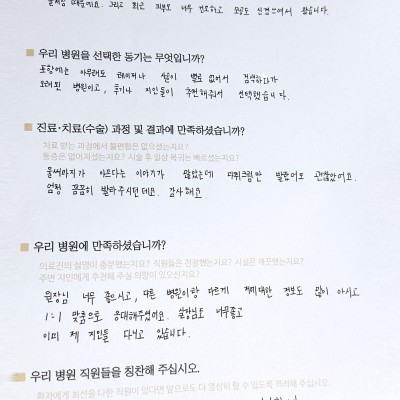 우리 병원을 선택한 동기는 무엇입니까?
포항에는 아무래도 레이저나 시설이 별로 없어서 검색하다가
오래된 병원이고, 후기나 지인들이 추천해줘서 선택했습니다.
진료·치료(수술) 과정 및 결과에 만족하셨습니까?
치료 받는 과정에서 불편함은 없으셨는지요?
통증은 없어지셨는지요? 시술 후 일상 복귀는 빠르셨는지요?
울쎄라자가 아프다는 이야기가 많았는데 마취크림만 발랐어도 괜찮았어요.
엄청 꼼꼼히 발라주시던데요. 감사해요
우리 병원에 만족하셨습니까?
의료진의 설명이 충분했는지요? 직원들은 친절했는지요? 시설은 깨끗했는지요?
주변 지인에게 추천해 주실 의향이 있으신지요?
원장님 너무 좋으시고, 다른 병원이랑 다르게 제대한 정보도 많이 아시고
1:1 맞춤으로 응대해주셨어요. 실장님도 너무좋고
이미 제 지인들 다니고 있습니다.
우리 병원 직원들을 칭찬해 주십시오.
환자에게 최선을 다한 직원이 있다면 앞으로도 더 열심히 할 수 있도록 격려해 주십시오.